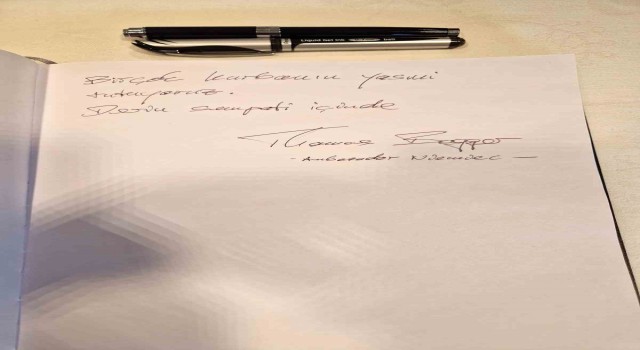 Liquid Gel Ink
Birçok kurbanın yasını
tutuyoruz.
Derin sempati içinde
Thomas Bagger
- Ambasador Niemiec -